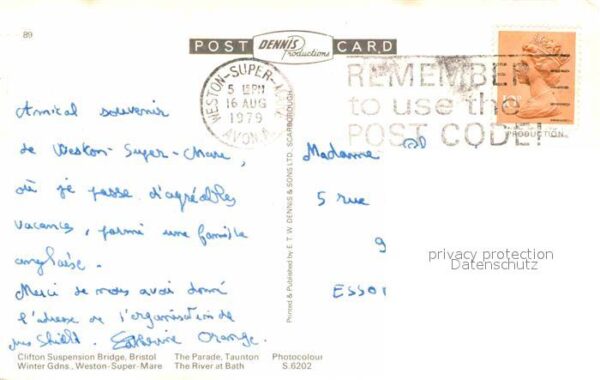 89
POST DENNIS Productions CARD
WESTON-SUPER-MARE
5 15 PM
16 AUG
1979
AVON
REMEMBER
to use the
POST CODE!
Amical souvenir
de Weston-Super-Mare,
où je passe d'agréables
vacances, parmi une famille
anglaise.
Merci de nous avoir donné
l'adresse de l'organisation de
Shield. Catherine Orange.
Madame
5 rue
9
ESSOI
privacy protection
Datenschutz
PRODUCTION
Printed & Published by E. T. W. DENNIS & SONS LTD., SCARBOROUGH
Clifton Suspension Bridge, Bristol The Parade, Taunton Photocolour
Winter Gdns., Weston-Super-Mare The River at Bath S.6202